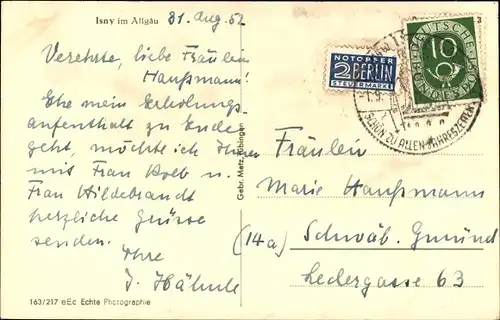 Isny im Allgäu
31. Aug. 52
Verehrte, liebe Fräulein
Haußmann!
Ehe mein Erholungs-
aufenthalt zu Ende
geht, möchte ich Ihnen
mit Frau Kolb u.
Frau Hildebrandt
herzliche Grüsse
senden.
Ihre
J. Hähnle
163/217 eEc Echte Photographie
Gebr. Metz, Tübingen
NOTOPFER
2 BERLIN
STEUERMARKE
DEUTSCHE
BUNDESPOST
10
3
SCHÖN ZU ALLEN JAHRESZEITEN
Fräulein
Marie Haußmann
(14a) Schwäb. Gmünd
Ledergasse 63